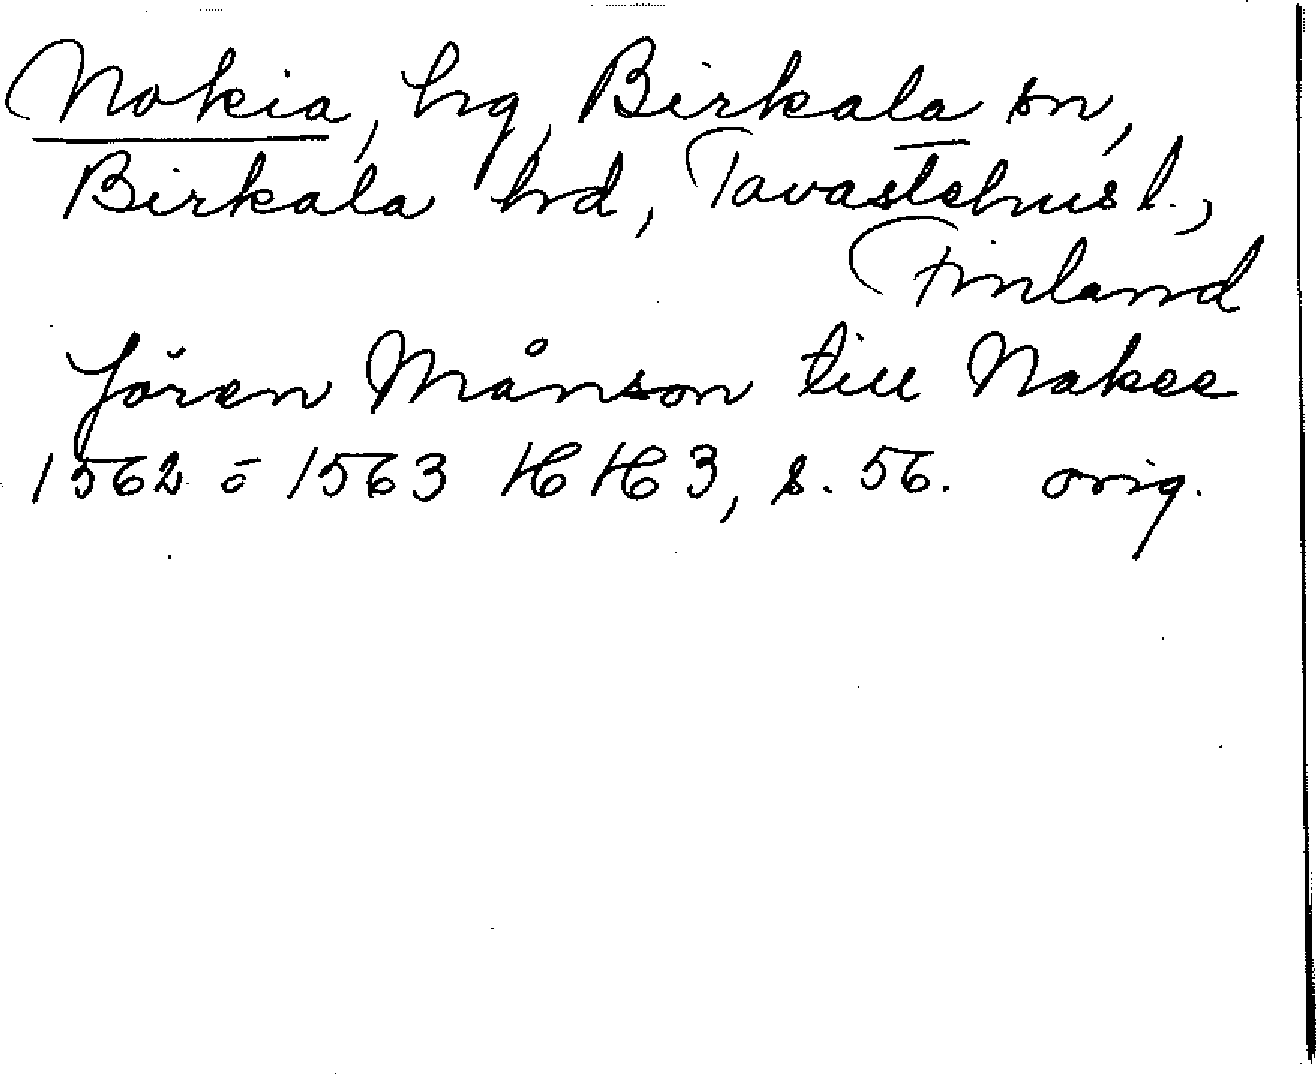 Nokia, hg, Birkala sn,
Birkala hd, Tavastehus l.,
Finland
Jören Månson till Nokee
1562 - 1563 HH 3, s. 56. orig.